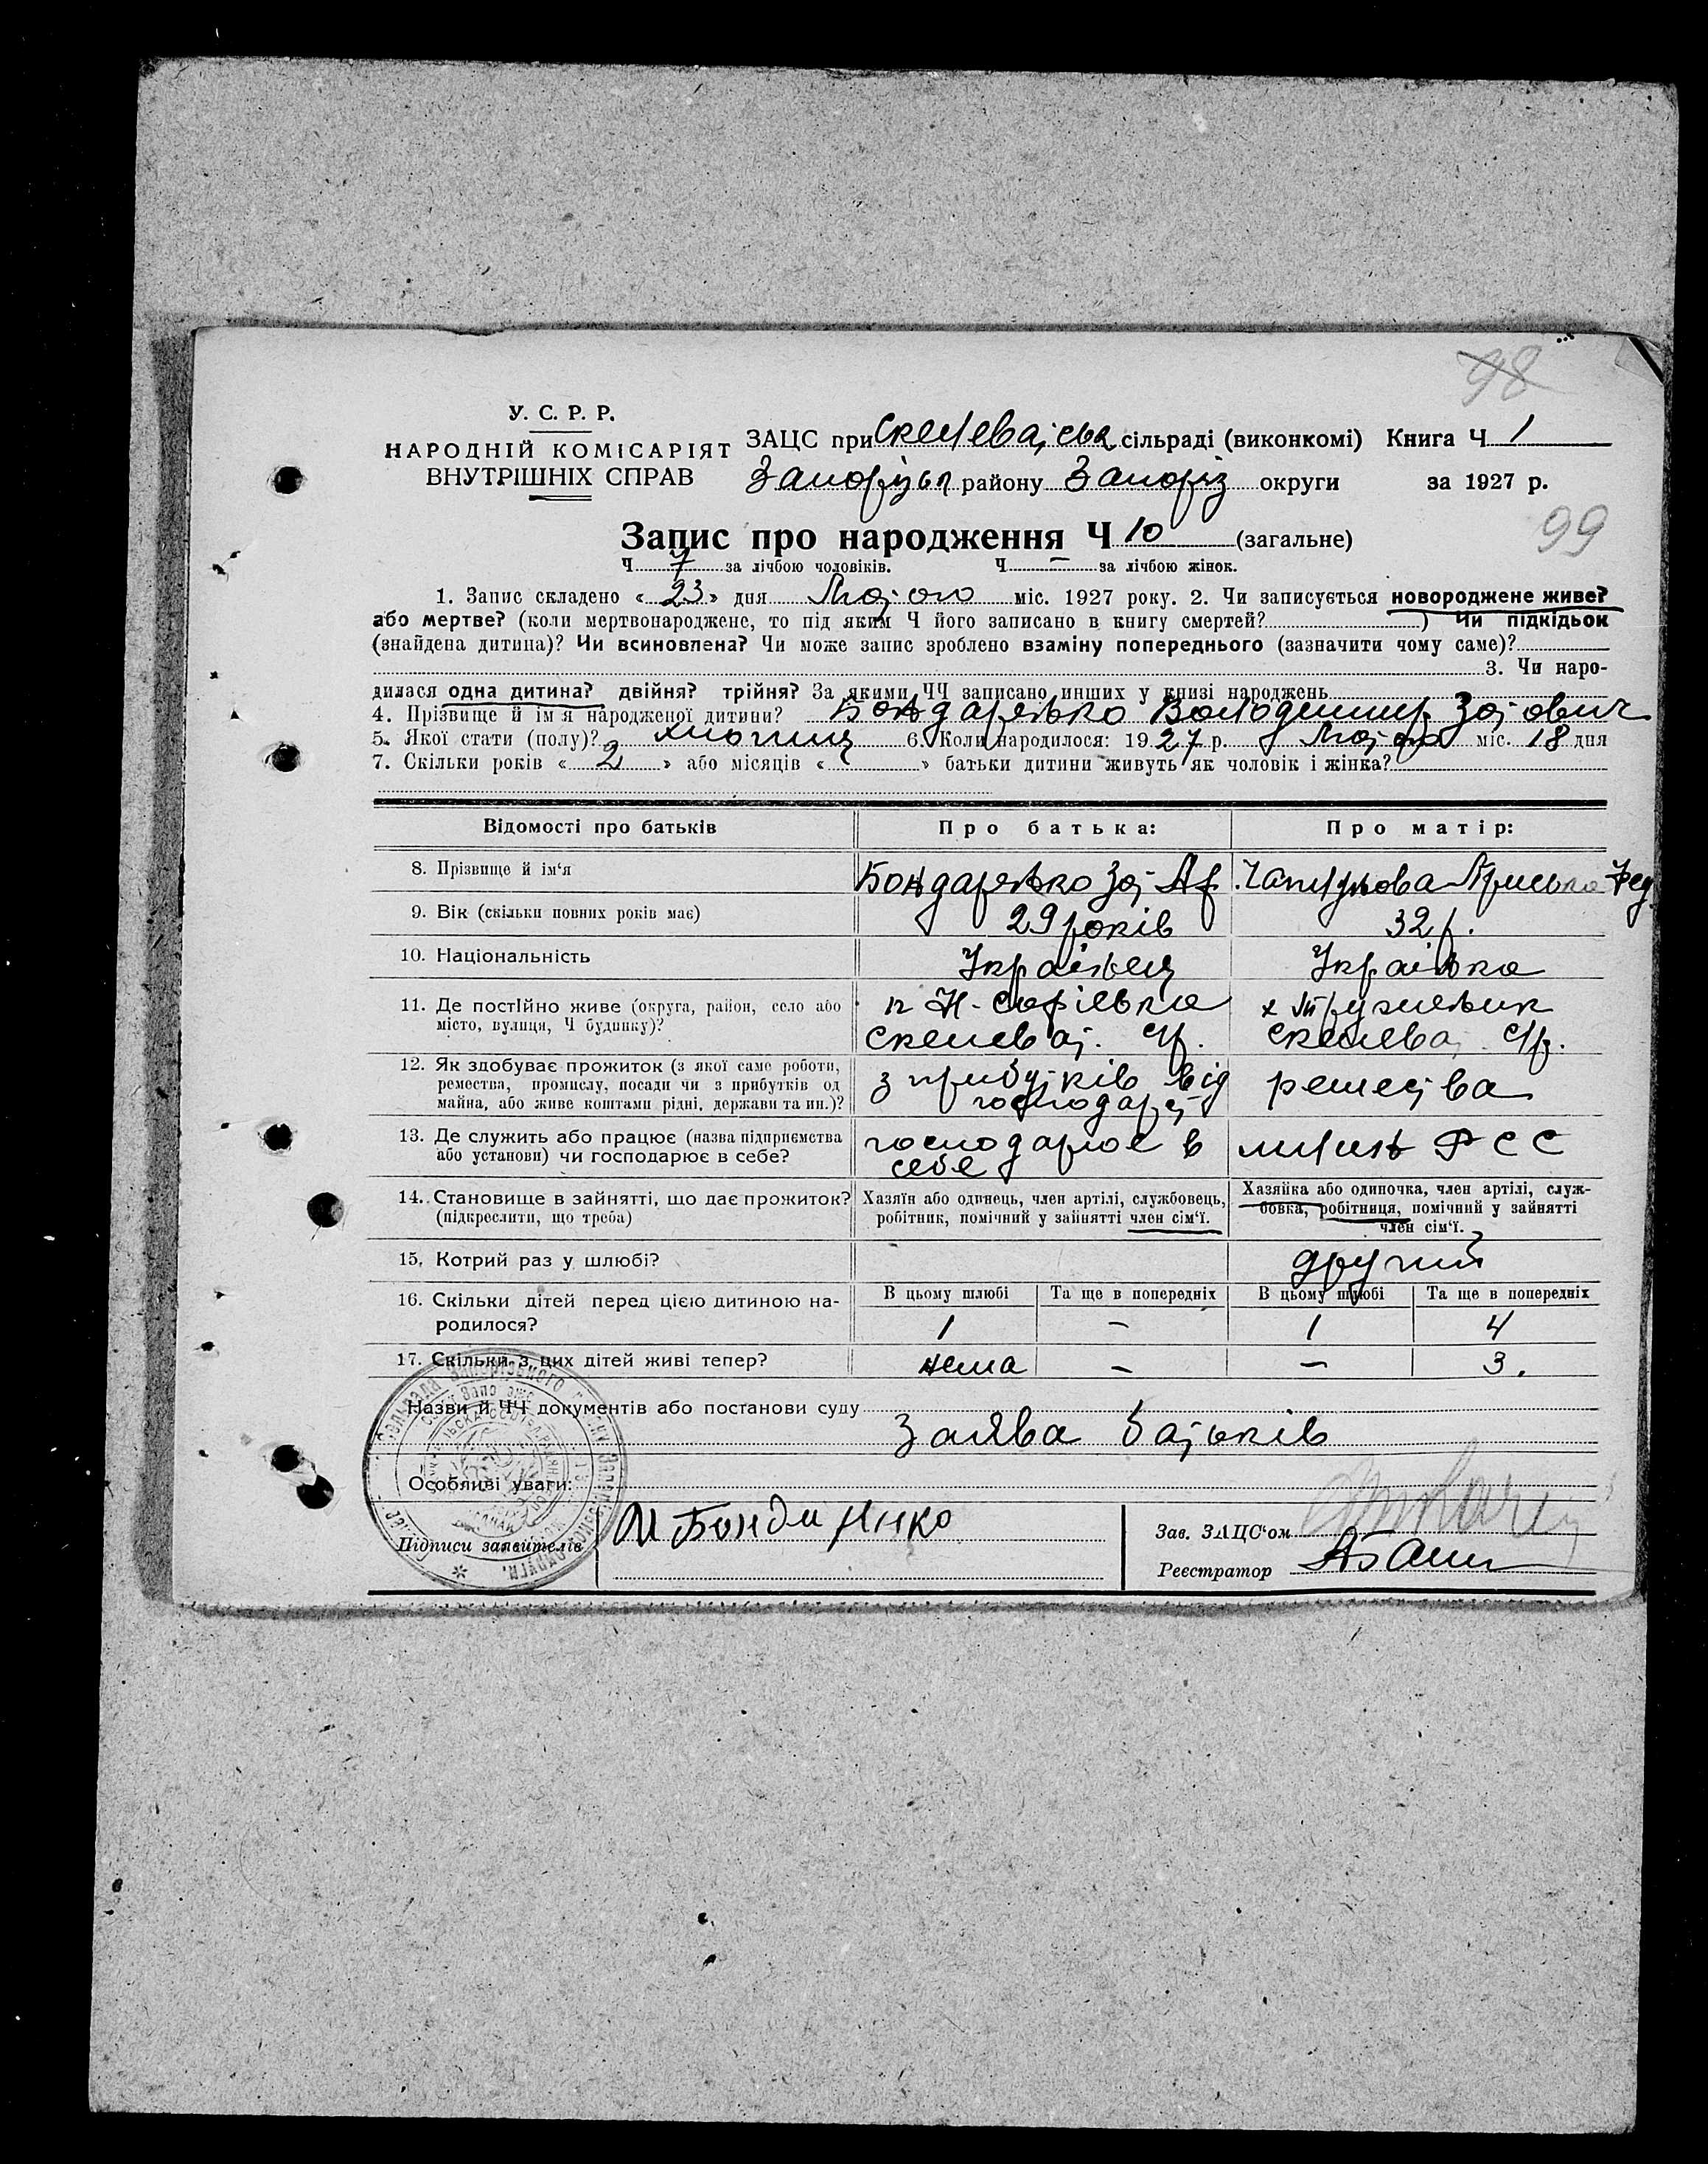 98
У. С. Р. Р.
НАРОДНІЙ КОМІСАРІЯТ
ВНУТРІШНІХ СПРАВ
ЗАЦС при сільраді (виконкомі) Книга Ч 1
району Запоріз округи за 1927 р.
99
Запис про народження Ч 10 (загальне)
Ч 7 за лічбою чоловіків. Ч — за лічбою жінок.
1. Запис складено « 23 » дня міс. 1927 року. 2. Чи записується новороджене живе?
або мертве? (коли мертвонароджене, то під яким Ч його записано в книгу смертей? ) Чи підкідьок
(знайдена дитина)? Чи всиновлена? Чи може запис зроблено взаміну попереднього (зазначити чому саме)?
3. Чи наро-
дилася одна дитина? двійня? трійня? За якими ЧЧ записано инших у книзі народжень
4. Прізвище й ім'я народженої дитини? Бондаренко Володимир
5. Якої стати (полу)? хлопець 6. Коли народилося: 1927 р. міс. 18 дня
7. Скільки років « 2 » або місяців « » батьки дитини живуть як чоловік і жінка?
Відомості про батьків
Про батька:
Про матір:
8. Прізвище й ім'я
Бондаренко
Фед.
9. Вік (скільки повних років має)
29 років
32 р.
10. Національність
Українець
Українка
11. Де постійно живе (округа, район, село або
місто, вулиця, Ч будинку)?
12. Як здобуває прожиток (з якої саме роботи,
ремества, промислу, посади чи з прибутків од
майна, або живе коштами рідні, держави та ин.)?
з прибутків від
господарст
13. Де служить або працює (назва підприємства
або установи) чи господарює в себе?
господарює в
себе
14. Становище в зайнятті, що дає прожиток?
(підкреслити, що треба)
Хазяїн або одинець, член артілі, службовець,
робітник, помічний у зайнятті член сім'ї.
Хазяйка або одиночка, член артілі, служ-
бовка, робітниця, помічний у зайнятті
член сім'ї.
15. Котрий раз у шлюбі?
другий
16. Скільки дітей перед цією дитиною на-
родилося?
В цьому шлюбі
Та ще в попередніх
В цьому шлюбі
Та ще в попередніх
1 — 1 4
17. Скільки з цих дітей живі тепер?
нема — — 3.
Назви й ЧЧ документів або постанови суду
Заява батьків
Особливі уваги:
Підписи заявителів
Зав. ЗАЦС'ом
Реєстратор